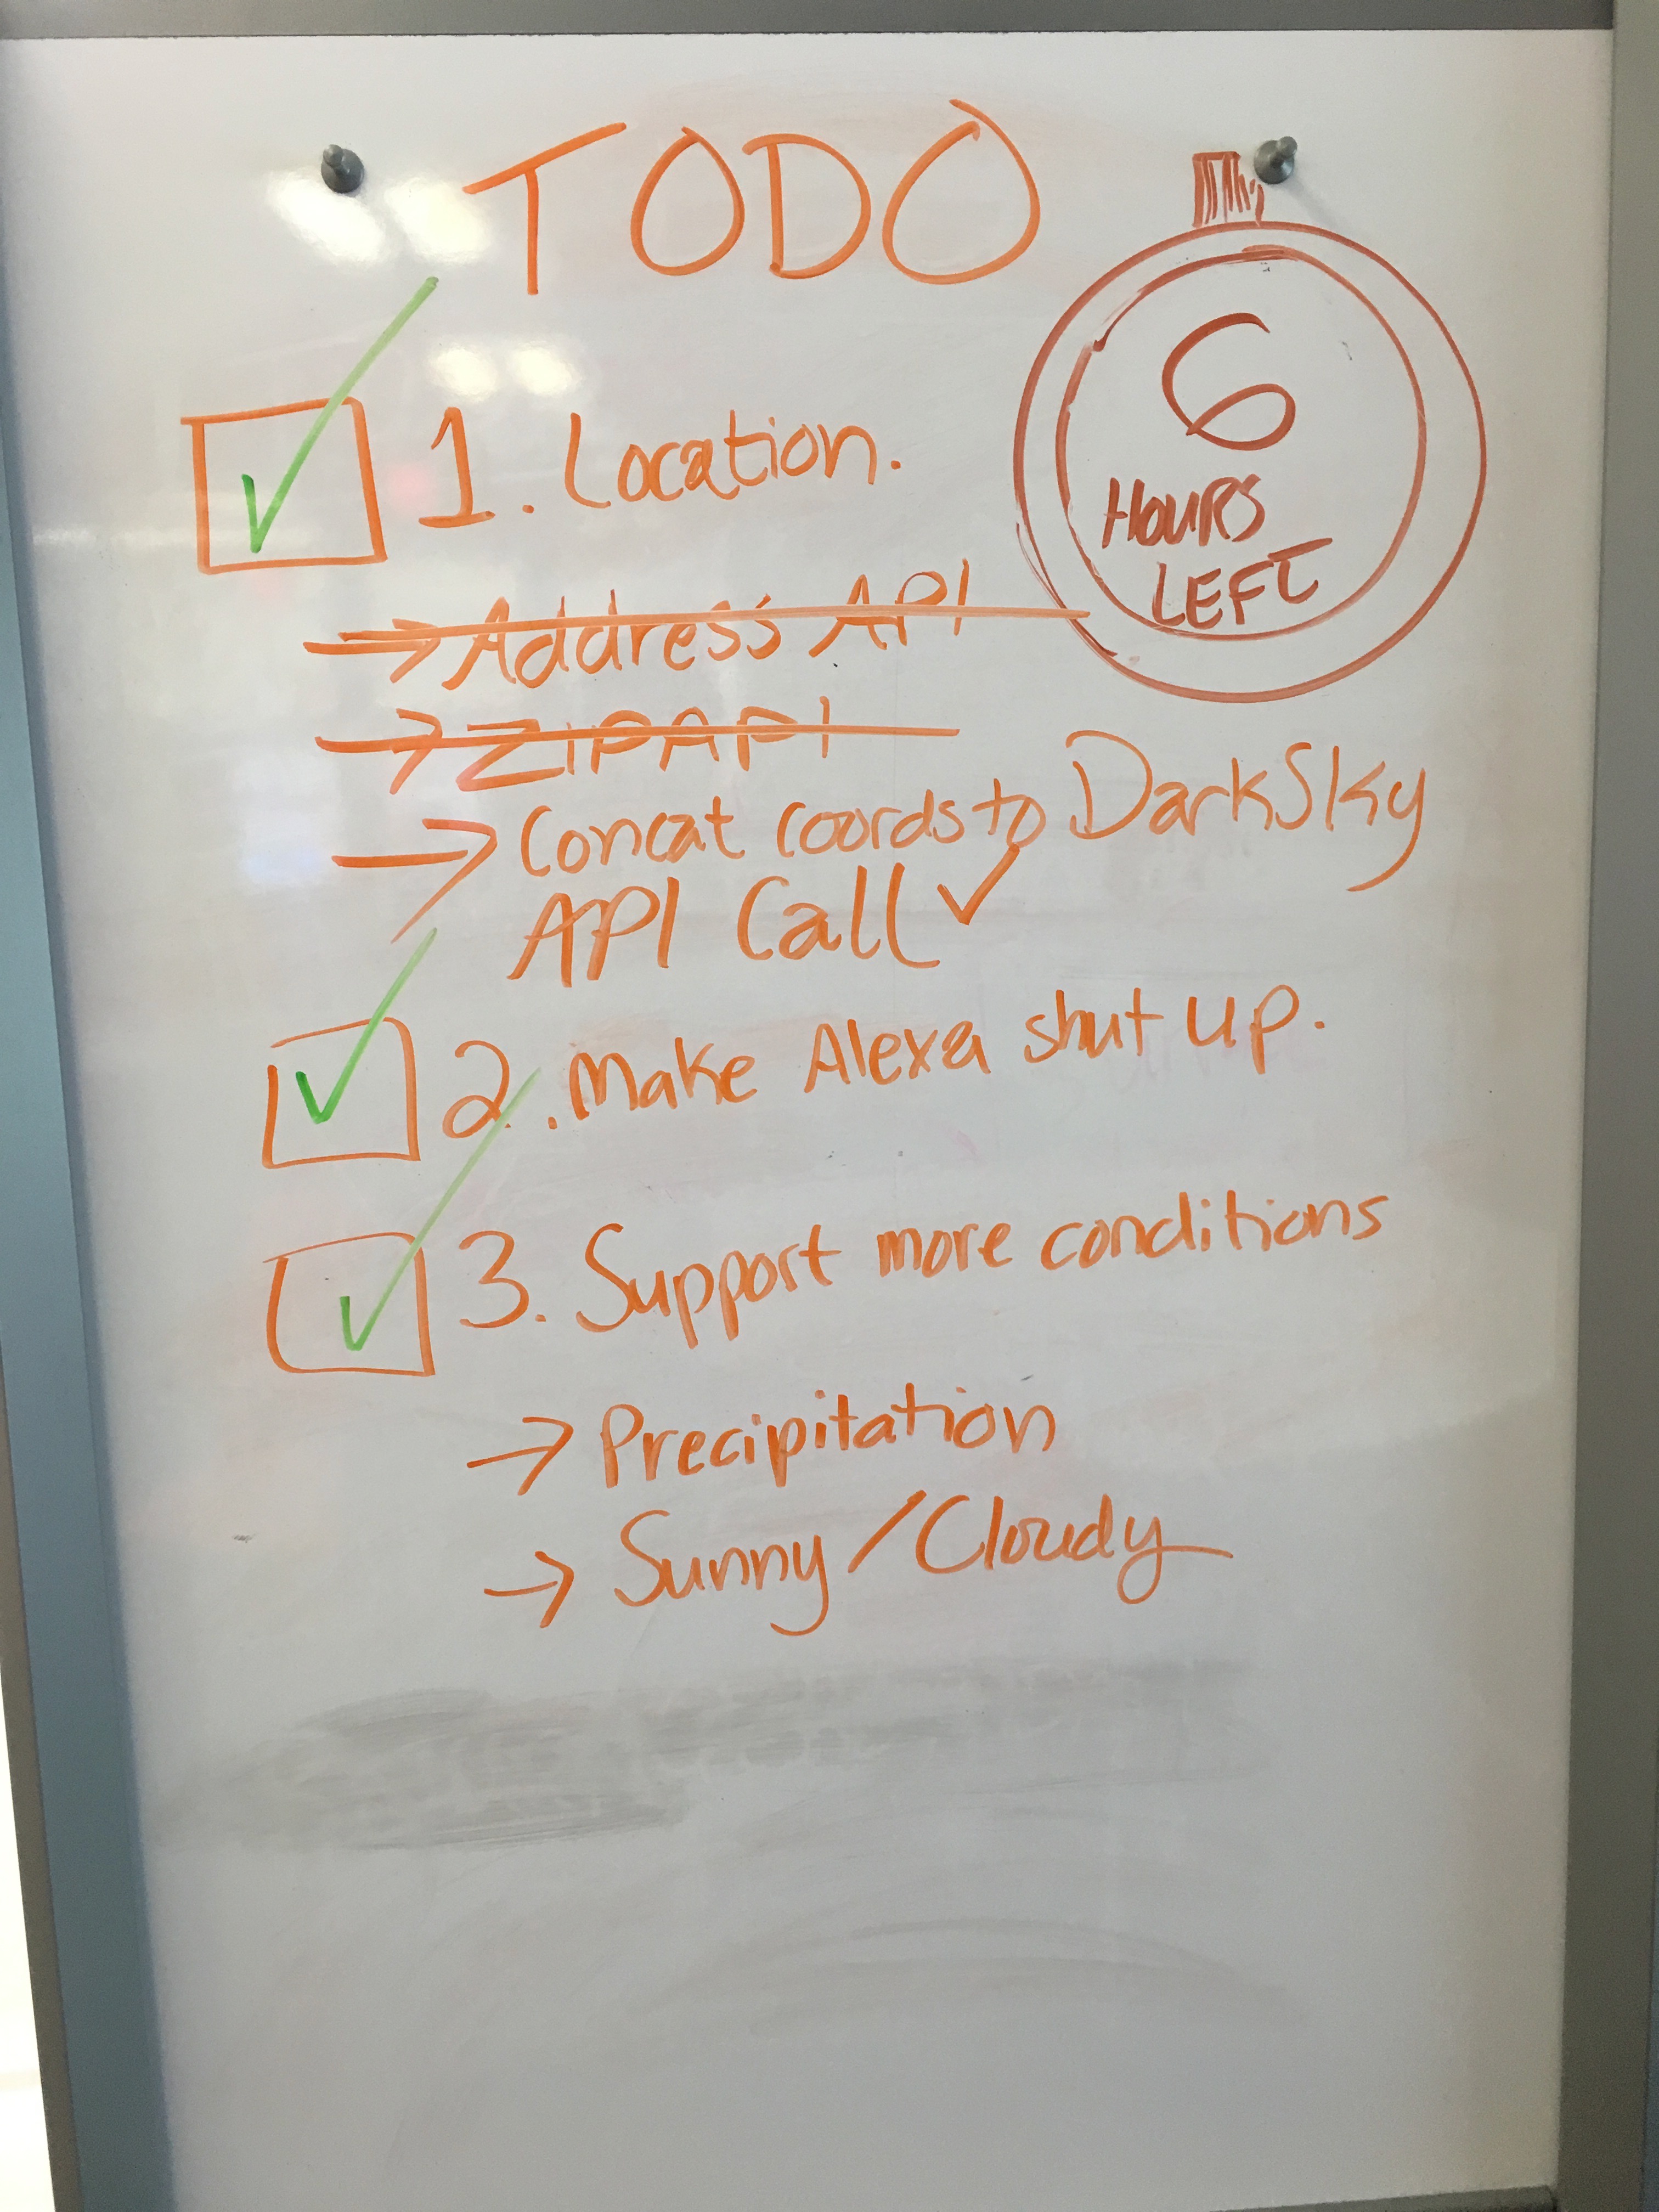 TODO
6
HOURS
LEFT
1. Location.
→ Address API
→ ZIP API
→ Concat coords to DarkSky
API Call ✓
2. Make Alexa shut up.
3. Support more conditions
→ Precipitation
→ Sunny/Cloudy